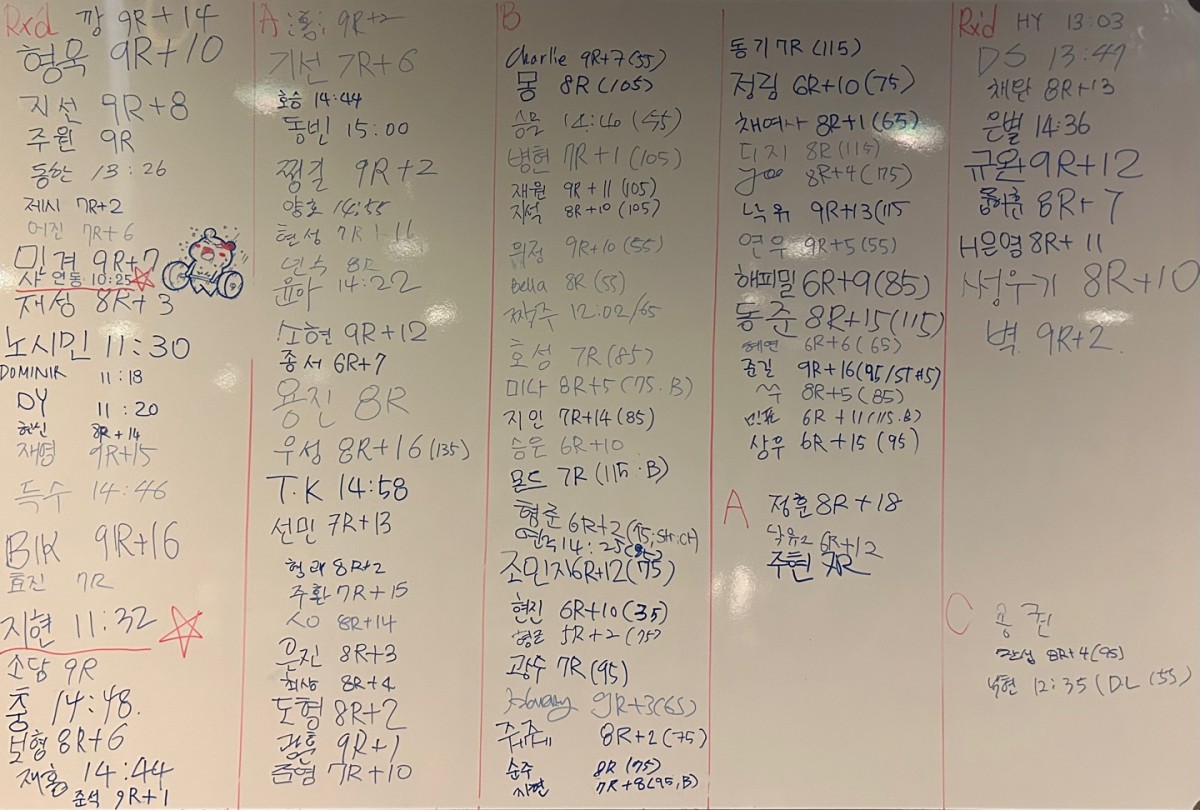 Rxd 깡 9R+14
형욱 9R+10
지선 9R+8
주원 9R
동한 13:26
제시 7R+2
어진 7R+6
민경 9R+7
샤 연동 10:25
재성 8R+3
노시민 11:30
DOMINIK 11:18
DY 11:20
현신 8R+14
재영 9R+15
득수 14:46
BIK 9R+16
효진 7R
지현 11:32
소담 9R
충 14:48
보형 8R+6
재홍 14:44
준석 9R+1
A :홍: 9R+2
기선 7R+6
호승 14:44
동빈 15:00
찡걸 9R+2
양호 14:55
현성 7R+11
년수 8R
윤아 14:22
소현 9R+12
종서 6R+7
용진 8R
우성 8R+16 (135)
T.K 14:58
선민 7R+13
혁래 8R+2
주환 7R+15
8R+14
은진 8R+3
희상 8R+4
도형 8R+2
광훈 9R+1
준형 7R+10
B
Charlie 9R+7 (55)
몽 8R (105)
승율 14:40 (55)
병헌 7R+1 (105)
재원 9R+11 (105)
지석 8R+10 (105)
위정 9R+10 (55)
Bella 8R (55)
짹주 12:02/65
호성 7R (85)
미나 8R+5 (75.B)
지인 7R+14 (85)
승은 6R+10
몬드 7R (115.B)
형준 6R+2 (95; Str.ct)
연주 14:25
조민지 6R+12 (75)
현진 6R+10 (35)
형근 5R+2 (75)
광수 7R (95)
9R+3 (65)
쥬쥬 8R+2 (75)
순주 8R (75)
지현 7R+8 (95,B)
동기 7R (115)
정림 6R+10 (75)
채여사 8R+1 (65)
디지 8R (115)
8R+4 (75)
낙유 9R+13 (115
연우 9R+5 (55)
해피밀 6R+9 (85)
동준 8R+15 (115)
혜연 6R+6 (65)
준길 9R+16 (95/ST#5)
쑥 8R+5 (85)
민표 6R+11 (115.B)
상우 6R+15 (95)
A 정훈 8R+18
낙유2 6R+12
주현 7R
Rx'd HY 13:03
DS 13:47
채환 8R+13
은별 14:36
규완 9R+12
8R+7
H은영 8R+11
성우기 8R+10
벽 9R+2
C 용권
8R+4 (95)
12:35 (DL (55)